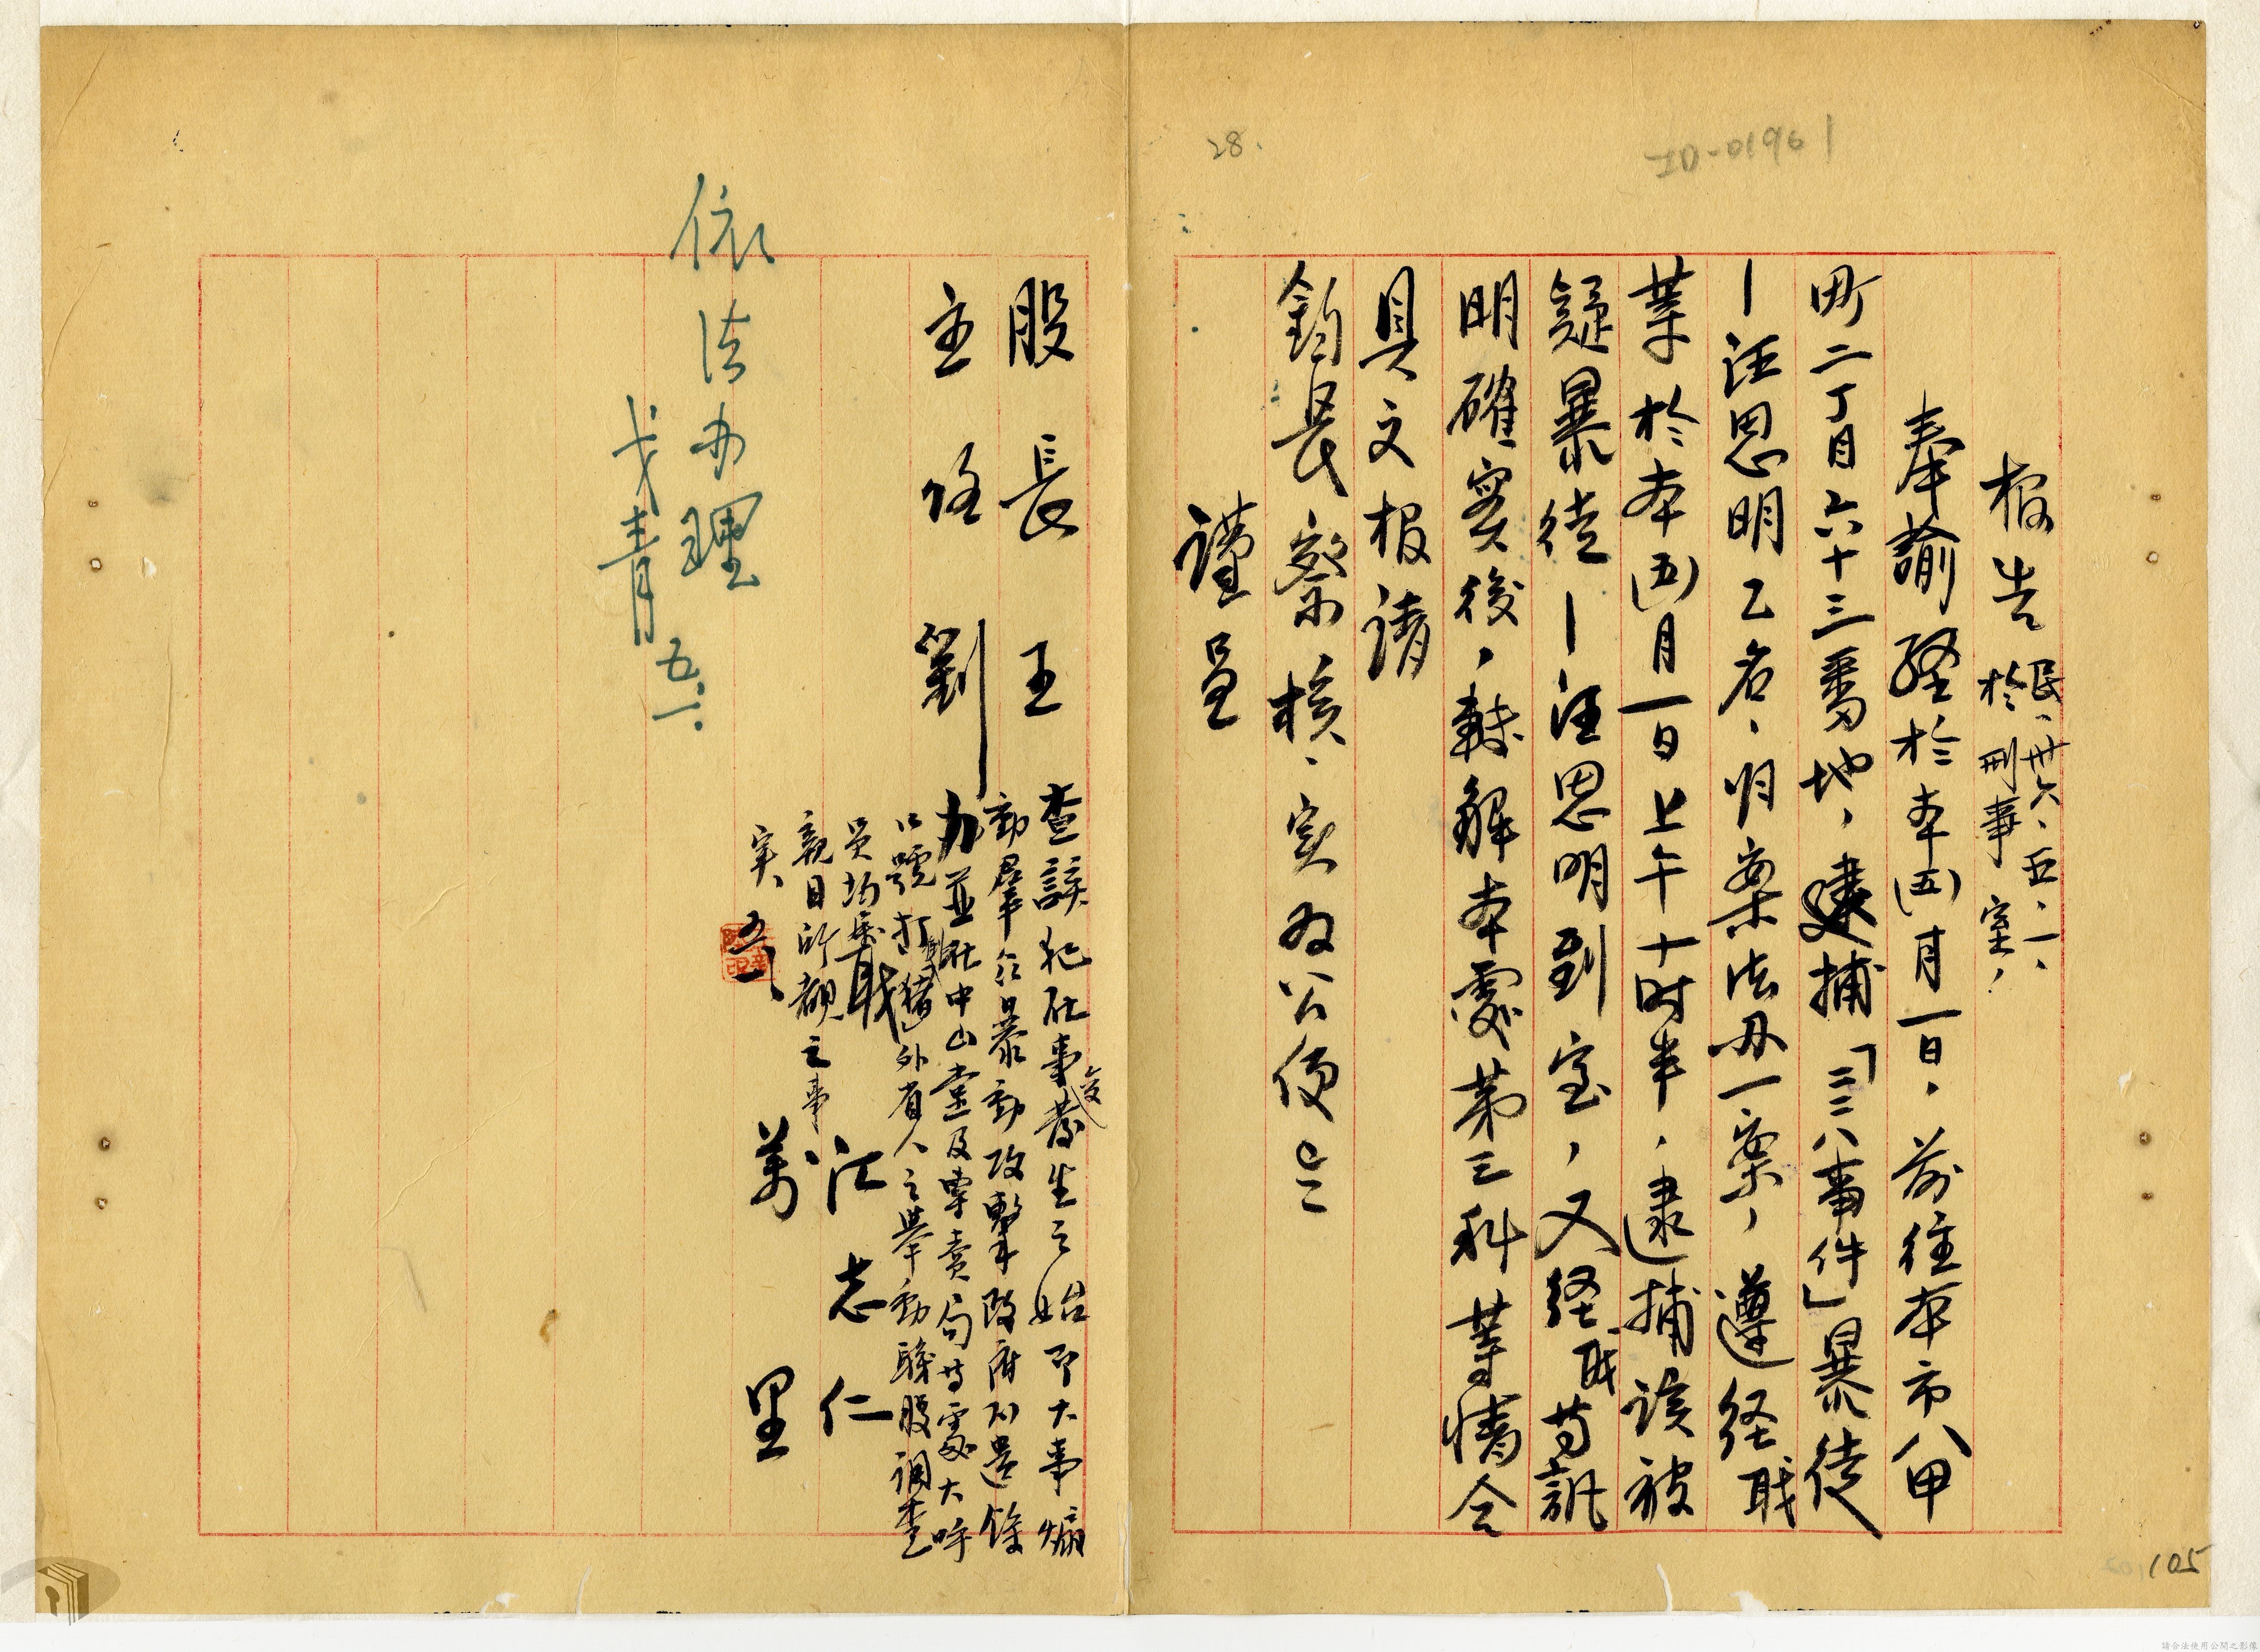 ID-01961
28.
報告 民、卅六、五、一、
於刑事室、
奉諭経於本(五)月一日、前往本市八甲
町二丁目六十三番地，逮捕「二二八事件」暴徒
－汪思明乙名、归案法办一案，遵经职
等於本(五)月一日上午十时半，逮捕该被
疑暴徒－汪思明到室，又経职等訊
明確实後，轉解本處第三科等情令
具文报请
鈞長察核、实為公便
謹呈
股長 王
主任 劉
查該犯在事变發生之始即大事煽
動羣众暴動攻擊政府不遺餘
力並在中山堂及專賣局等處大呼
口號打猪外省人之舉動職股調查
員均系职
親目所覩之事
实 五、一、
江志仁
萬里
依法办理
戈青 五.一.
105
請合法使用公開之影像